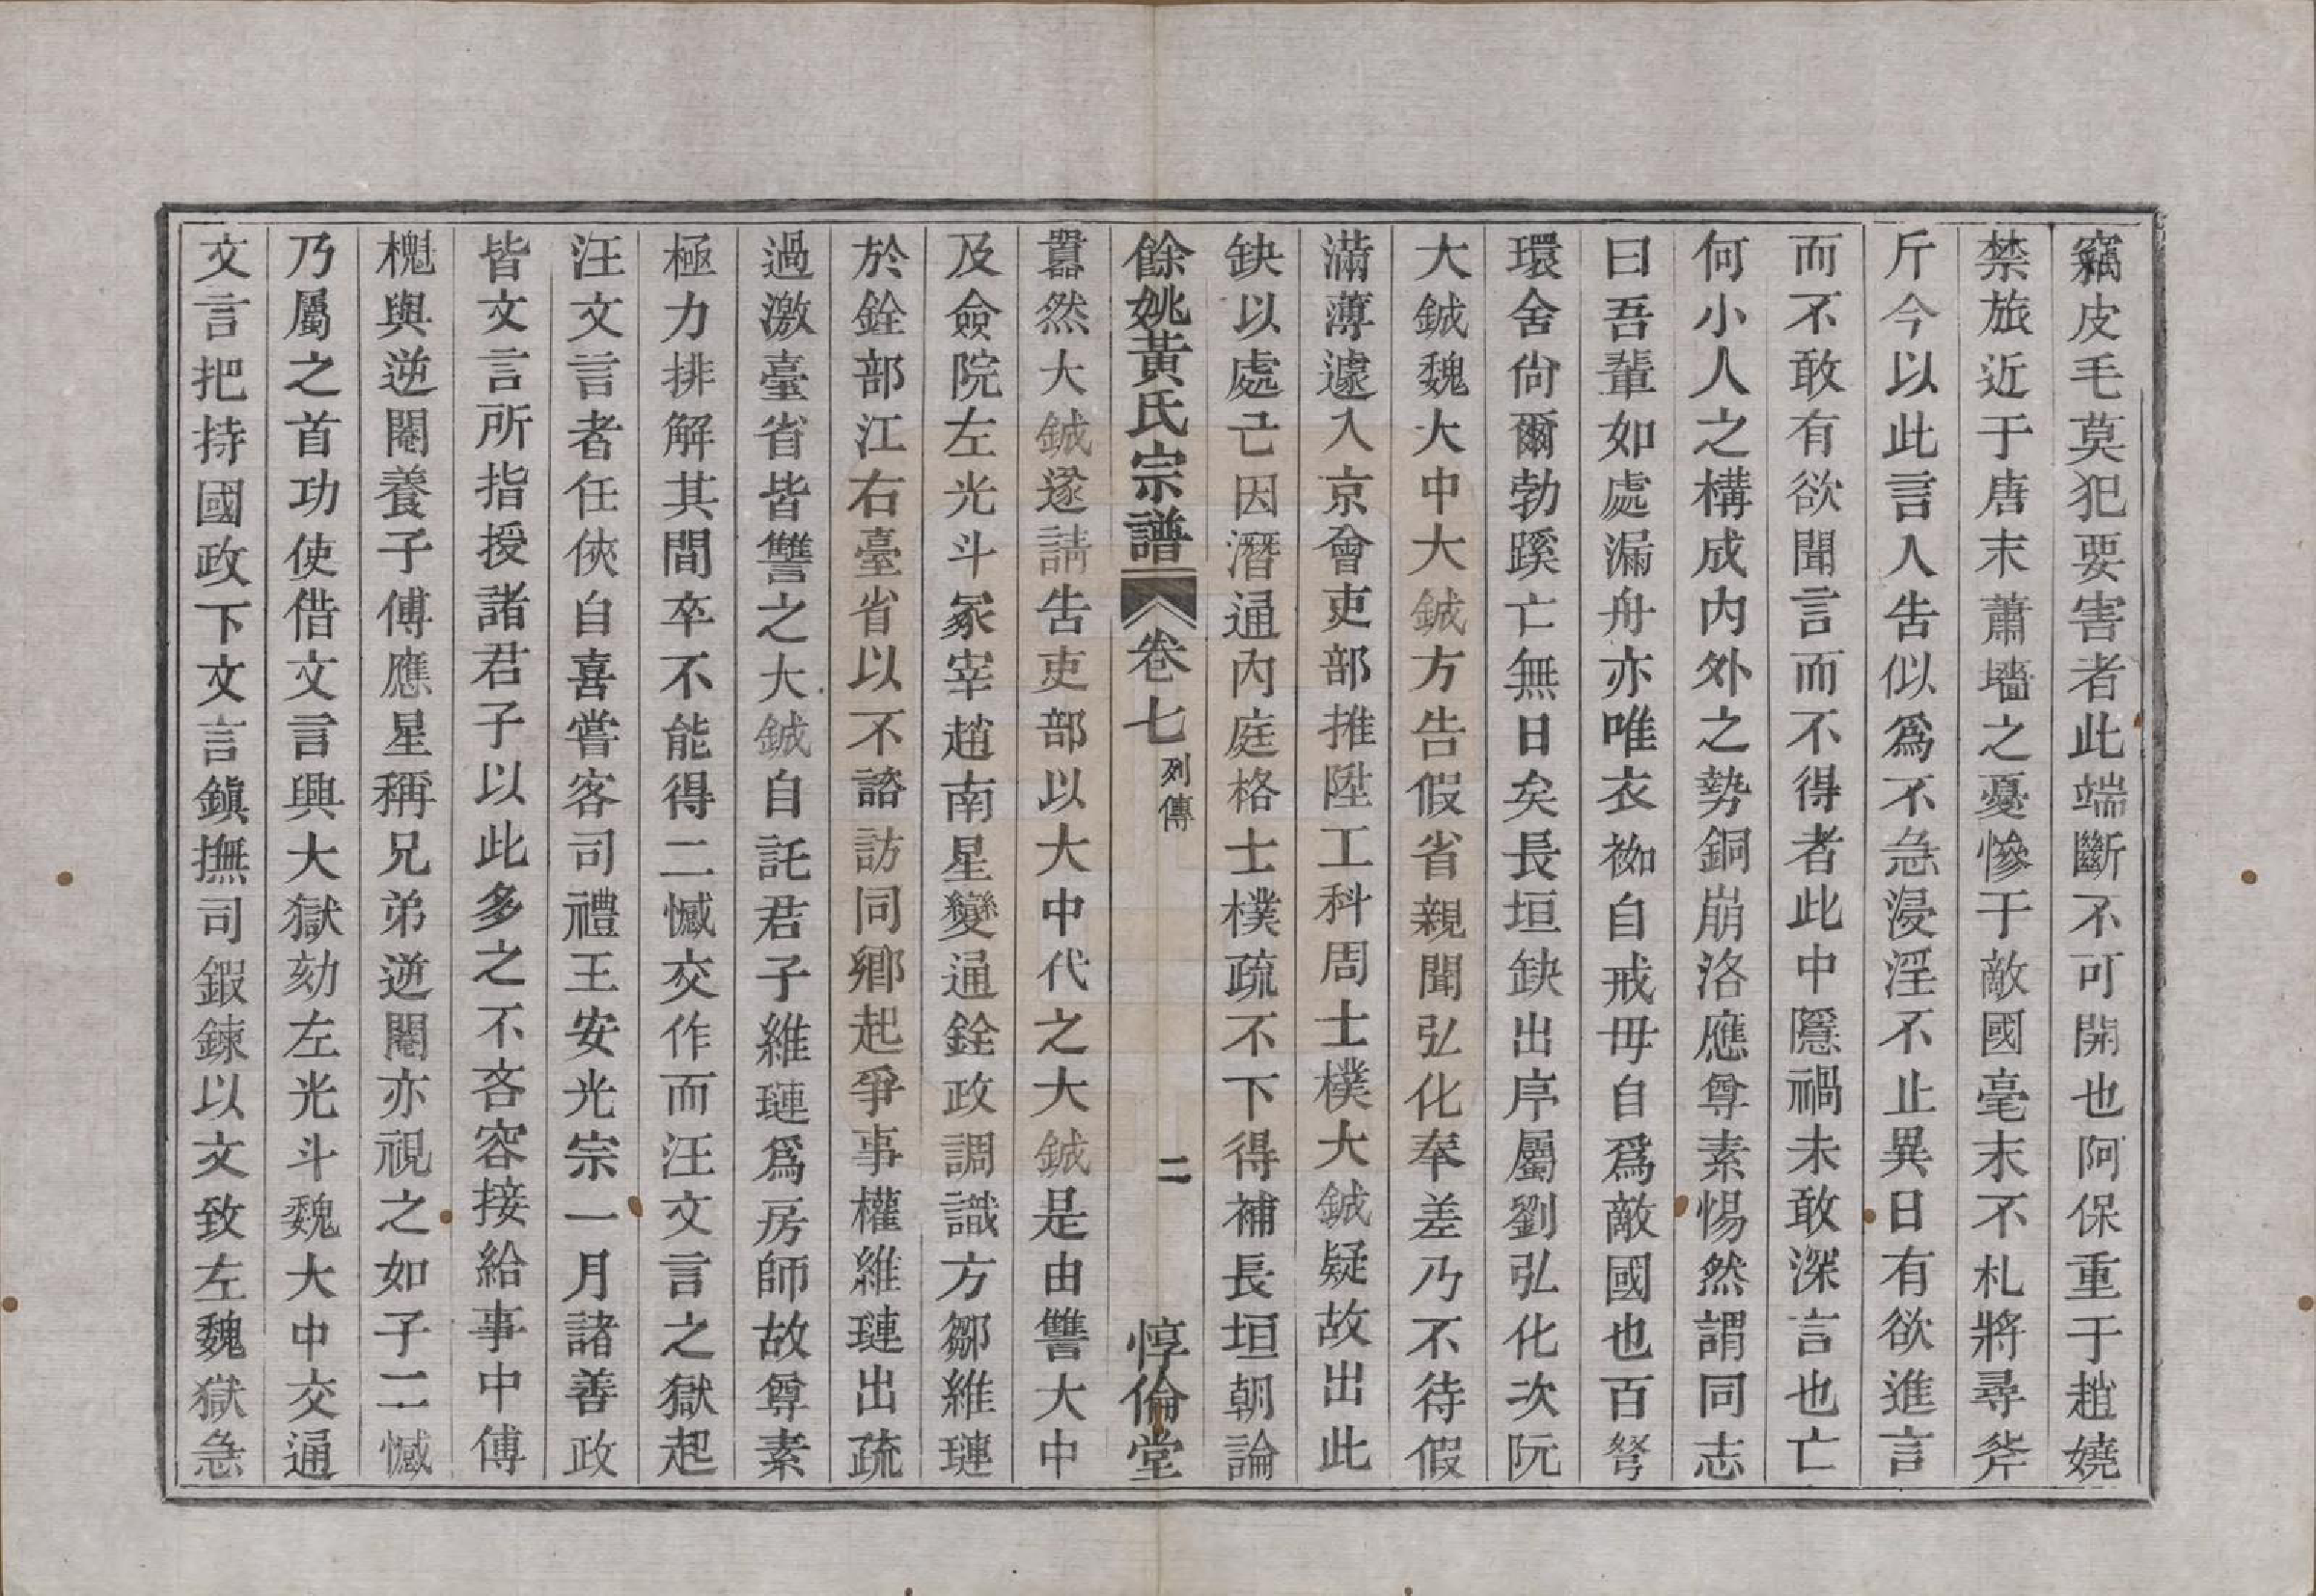 竊皮毛莫犯要害者此端斷不可開也阿保重于趙嬈
禁旅近于唐末蕭墻之憂慘于敵國毫末不札將尋斧
斤今以此言人告似爲不急浸淫不止異日有欲進言
而不敢有欲聞言而不得者此中隱禍未敢深言也亡
何小人之構成內外之勢銅崩洛應尊素惕然謂同志
曰吾輩如處漏舟亦唯衣袽自戒毋自爲敵國也百弩
環舍尙爾勃蹊亡無日矣長垣缺出序屬劉弘化次阮
大鋮魏大中大鋮方告假省親聞弘化奉差乃不待假
滿薄遽入京會吏部推陞工科周士樸大鋮疑故出此
缺以處己因潛通內庭格士樸疏不下得補長垣朝論
餘姚黃氏宗譜 卷七 列傳 二 惇倫堂
囂然大鋮遂請告吏部以大中代之大鋮是由讐大中
及僉院左光斗冢宰趙南星變通銓政調識方鄒維璉
於銓部江右臺省以不諮訪同鄉起爭事權維璉出疏
過激臺省皆讐之大鋮自託君子維璉爲房師故尊素
極力排解其間卒不能得二憾交作而汪文言之獄起
汪文言者任俠自喜嘗客司禮王安光宗一月諸善政
皆文言所指授諸君子以此多之不吝容接給事中傅
櫆與逆閹養子傅應星稱兄弟逆閹亦視之如子二憾
乃屬之首功使借文言興大獄劾左光斗魏大中交通
文言把持國政下文言鎭撫司鍜鍊以文致左魏獄急